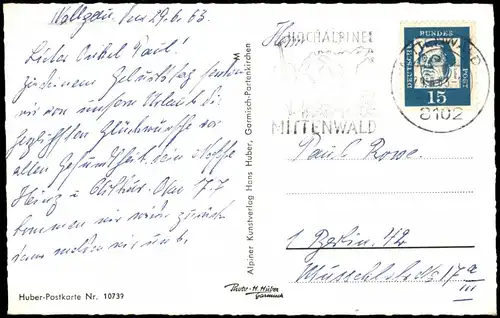 Wallgau, den 29.6.63.
Lieber Onkel Paul!
Zu deinem Geburtstag senden
wir von unserm Urlaub die
herzlichsten Glückwünsche vor
allen Gesundheit dein Neffe
Heinz u. Am 7.7
kommen wir wieder zurück
dann melden wir uns.
Huber-Postkarte Nr. 10739
Alpiner Kunstverlag Hans Huber, Garmisch-Partenkirchen
Photo-H. Huber
Garmisch
Herrn
HOCHALPINE
MITTENWALD
MITTENWALD
8102
DEUTSCHE BUNDESPOST
15
Paul Rowe.
1 Berlin. 42
17a
III